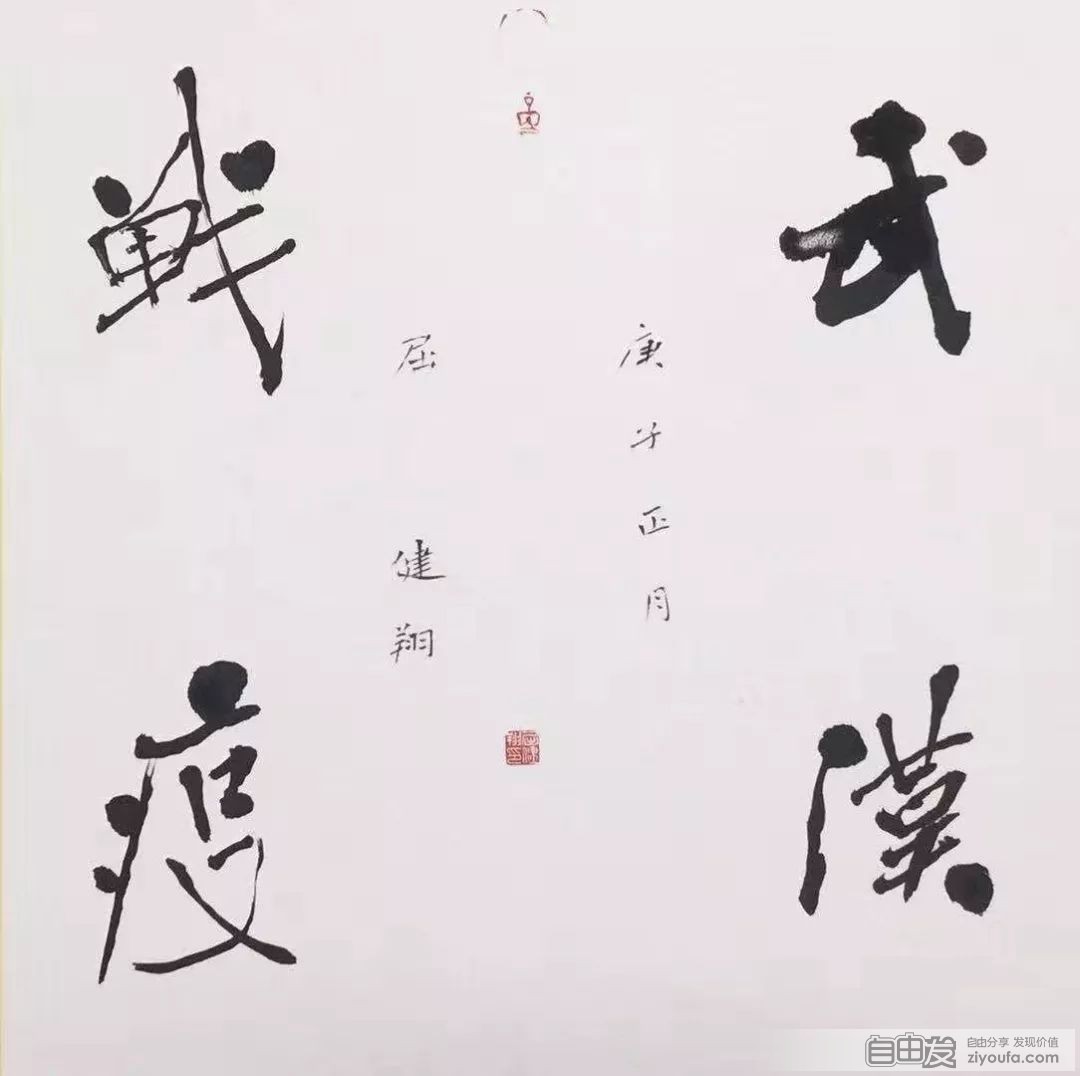 武漢
戦疫
庚子正月
屈健翔
自由发
自由分享 发现价值
ziyoufa.com